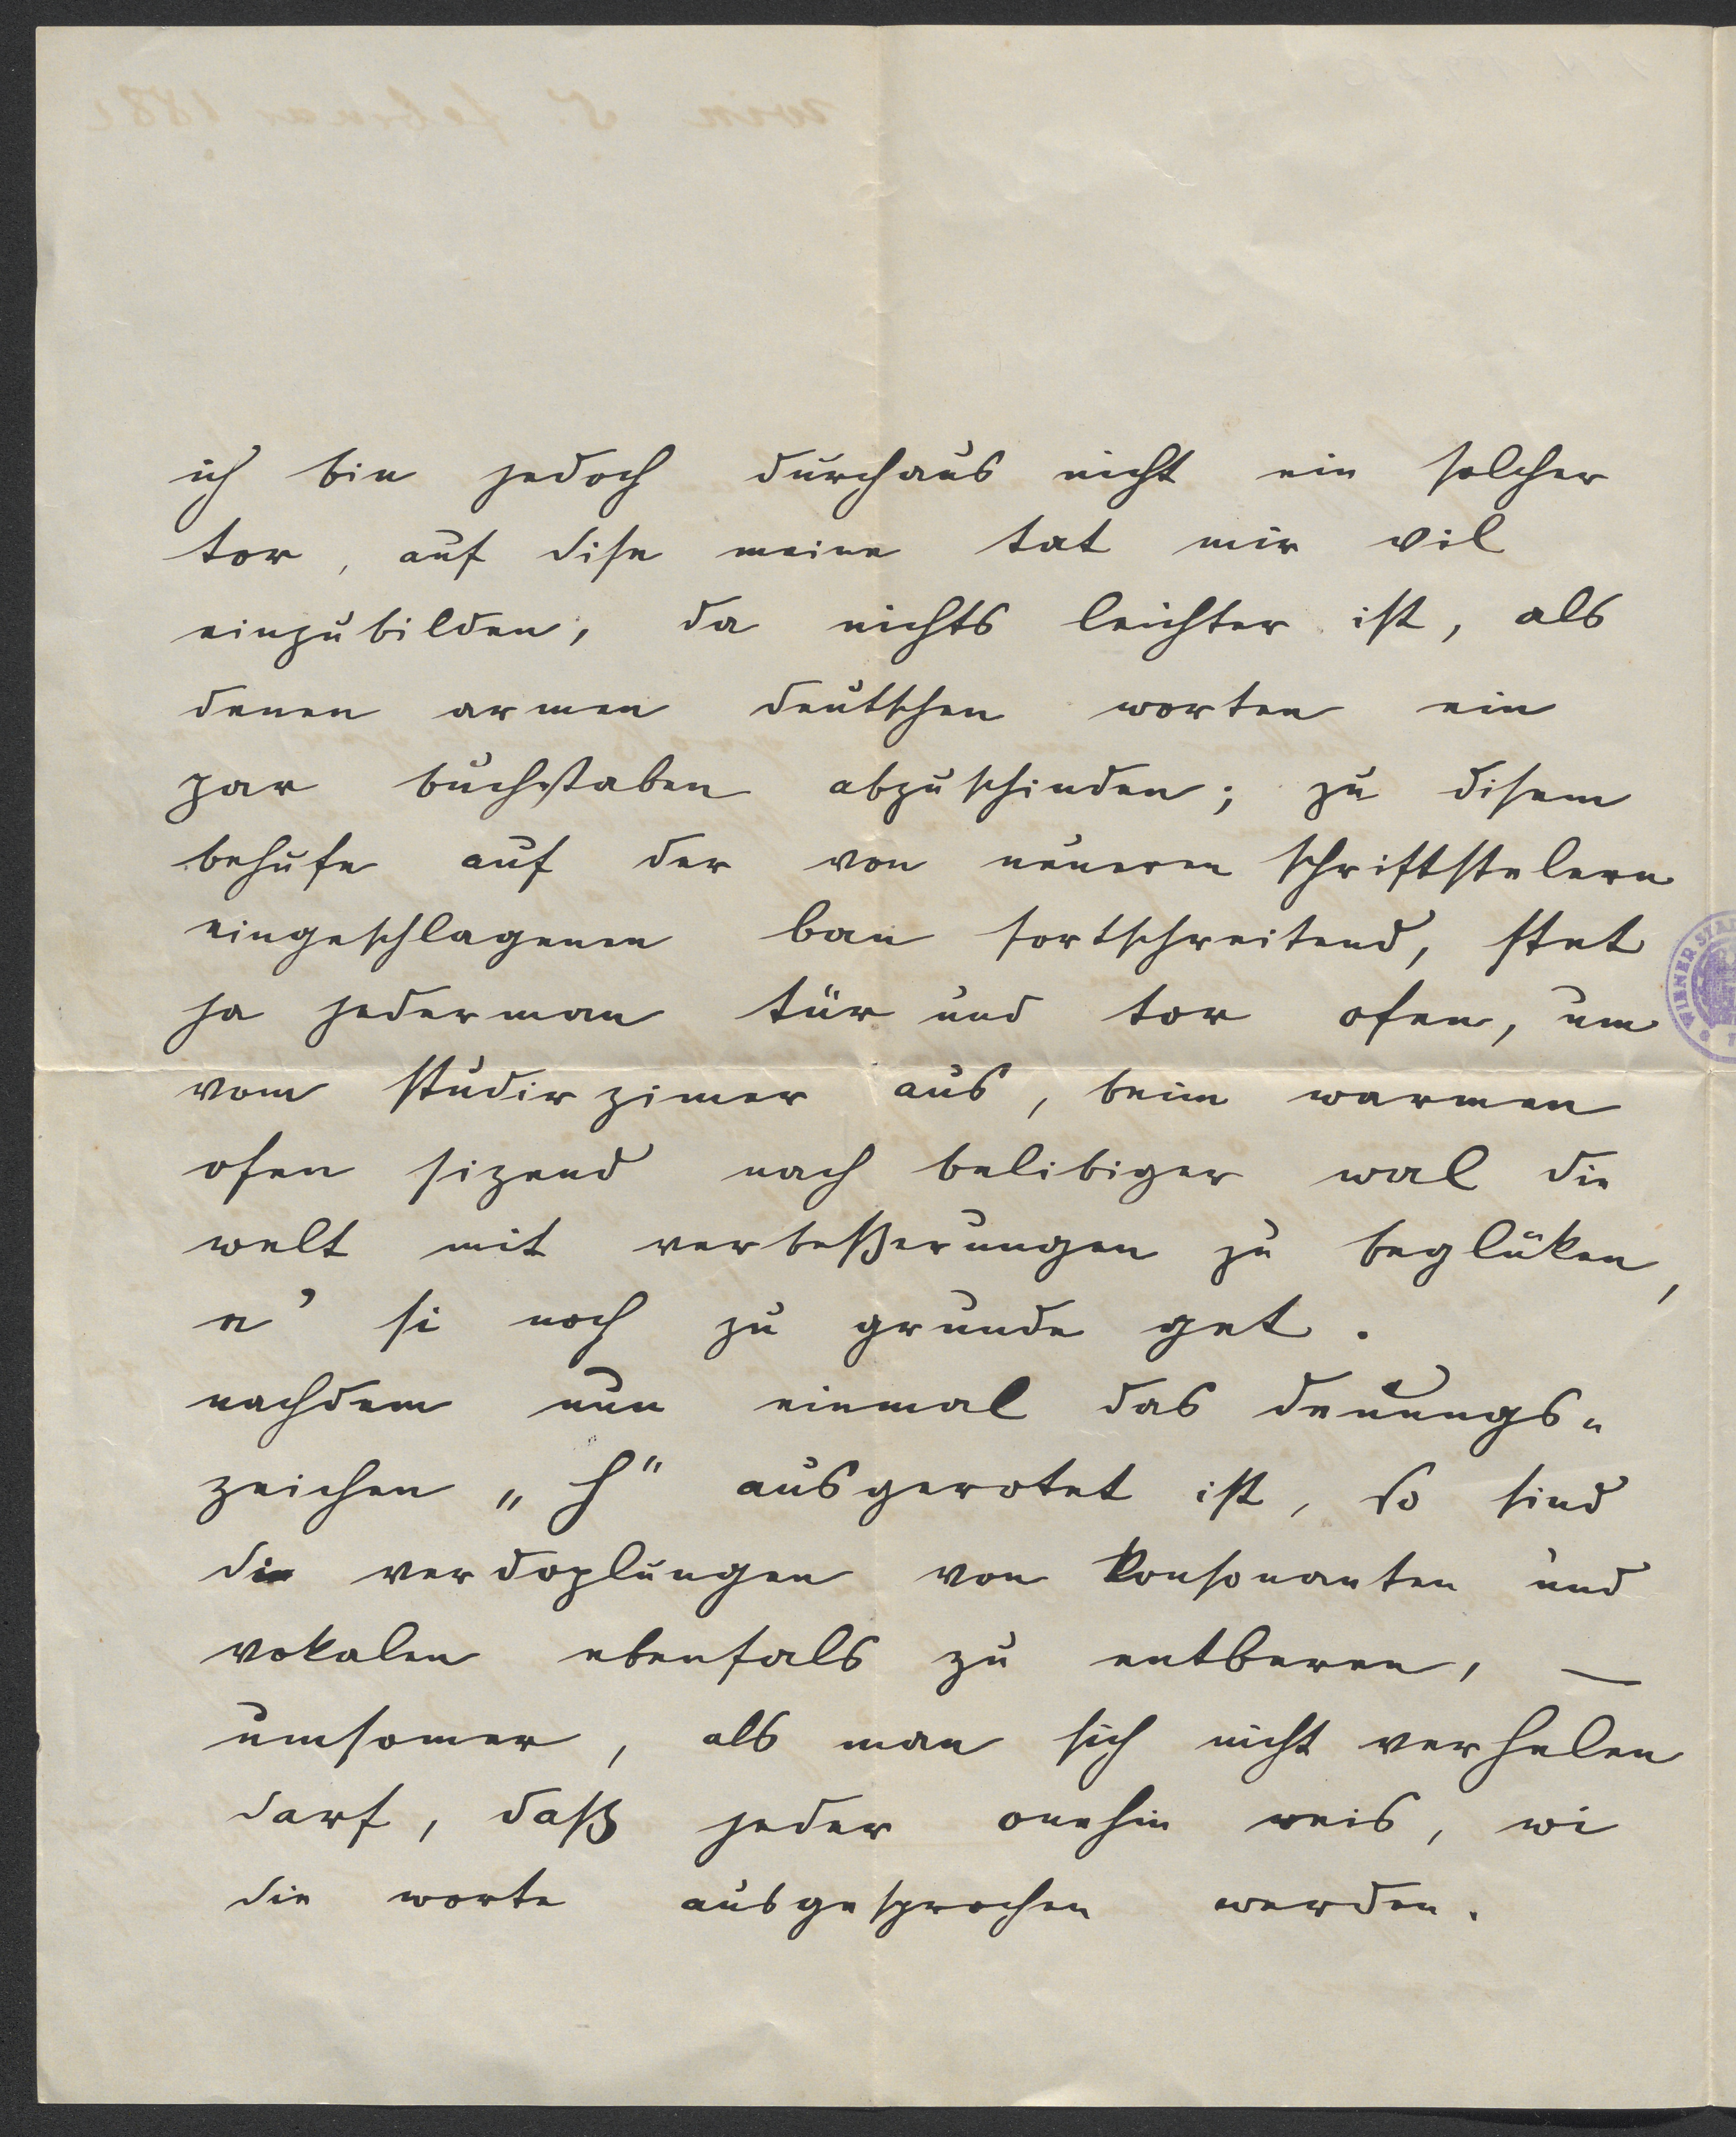 ich bin jedoch durchaus nicht ein solcher
tor, auf dise meine tat mir vil
einzubilden, da nichts leichter ist, als
denen armen deutschen worten ein
par buchstaben abzuschinden; zu disem
behufe auf der von neueren schriftstelern
eingeschlagenen ban fortschreitend, stet
ja jederman tür und tor ofen, um
vom studirzimer aus, beim warmen
ofen sizend nach belibiger wal die
welt mit verbeßerungen zu beglüken,
e' si noch zu grunde get.
nachdem nun einmal das denungs-
zeichen „h" ausgerotet ist, so sind
die verdoplungen von konsonanten und
vokalen ebenfals zu entberen, —
umsomer, als man sich nicht verhelen
darf, daß jeder onehin weis, wi
die worte ausgesprochen werden.
WIENER